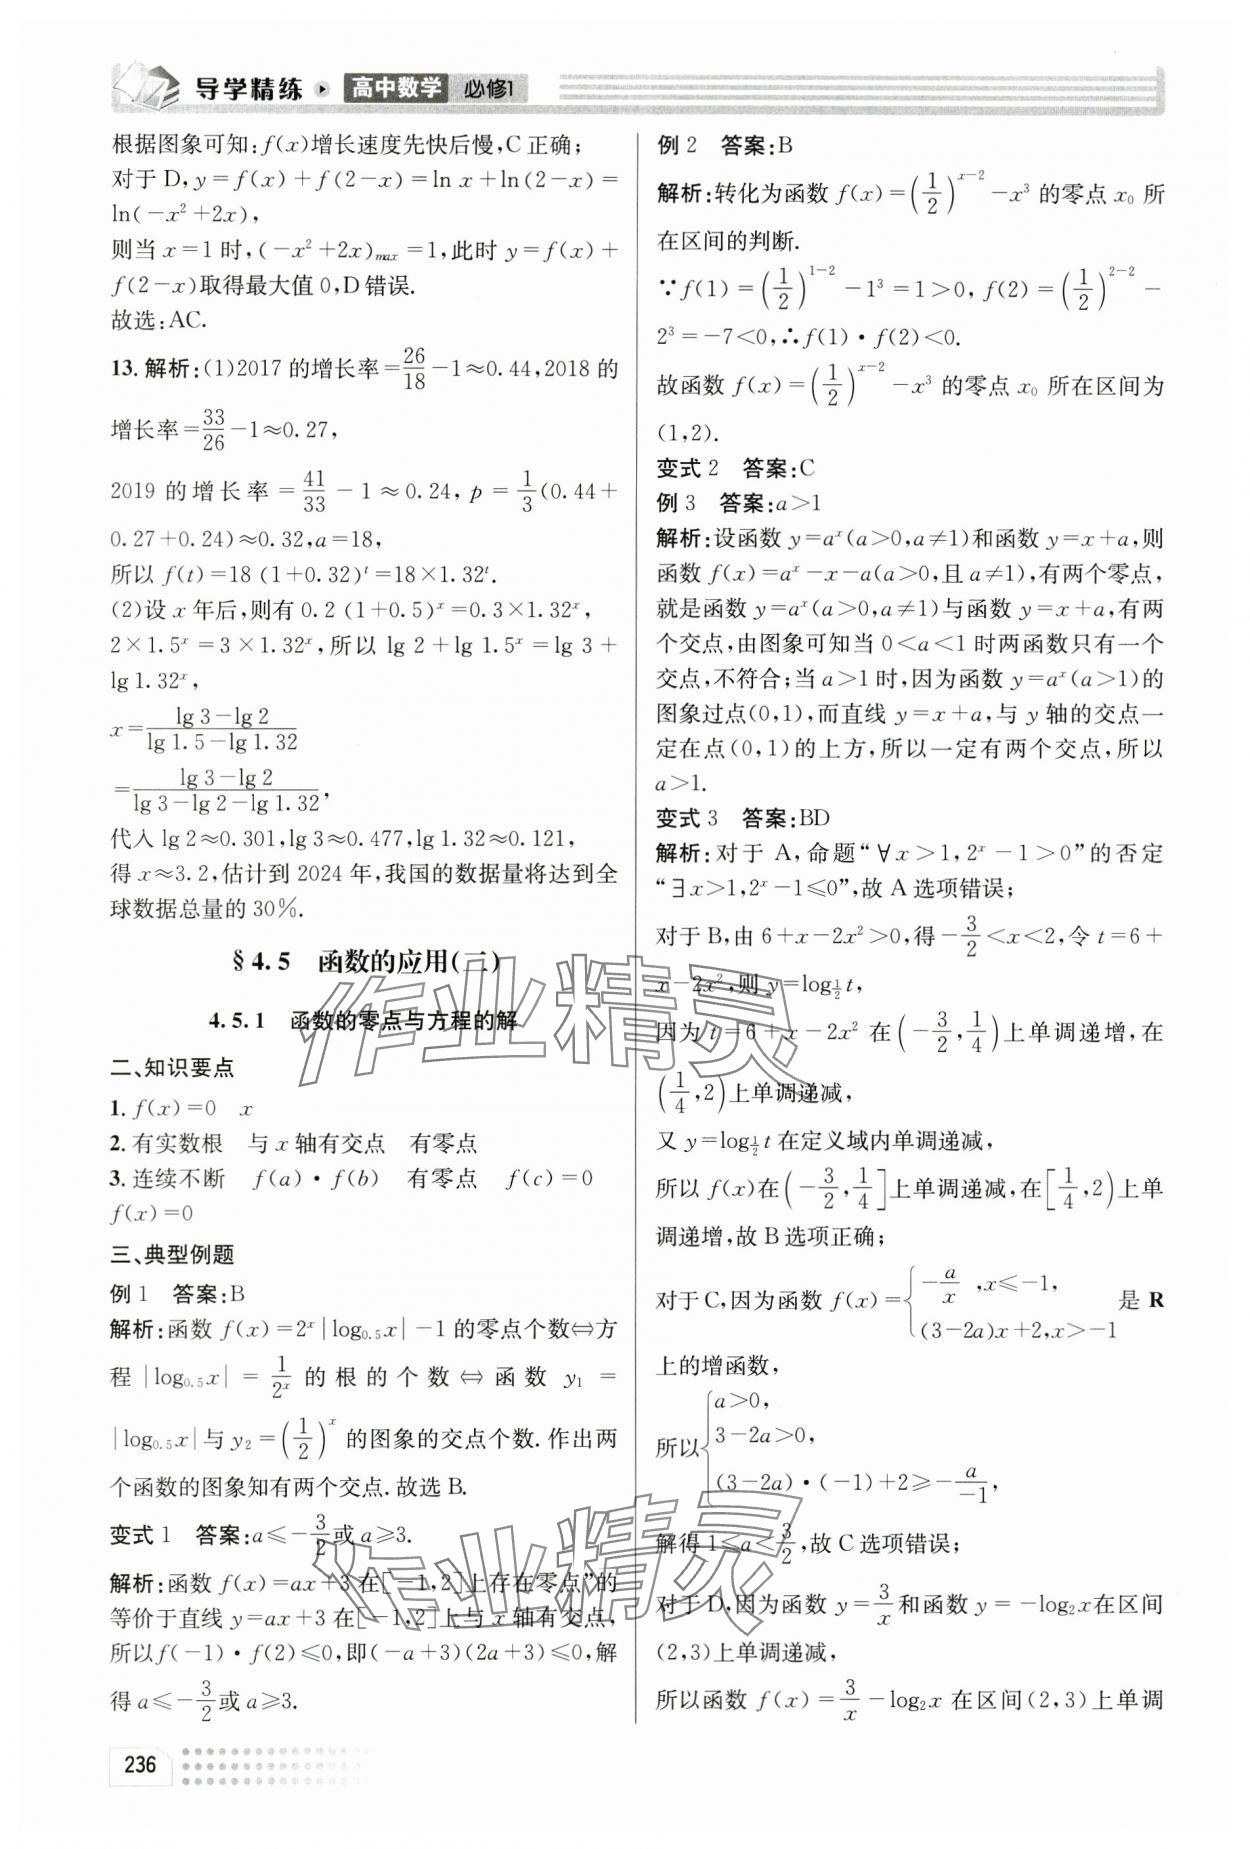 导学精练 高中数学 必修1
根据图象可知:f(x)增长速度先快后慢,C正确;
对于D,y=f(x)+f(2-x)=ln x+ln(2-x)=
ln(-x²+2x),
则当x=1时,(-x²+2x)max=1,此时y=f(x)+
f(2-x)取得最大值0,D错误.
故选:AC.
13.解析:(1)2017的增长率=26/18-1≈0.44,2018的
增长率=33/26-1≈0.27,
2019的增长率=41/33-1≈0.24,p=1/3(0.44+
0.27+0.24)≈0.32,a=18,
所以f(t)=18(1+0.32)^t=18×1.32^t.
(2)设x年后,则有0.2(1+0.5)^x=0.3×1.32^x,
2×1.5^x=3×1.32^x,所以lg 2+lg 1.5^x=lg 3+
lg 1.32^x,
x=(lg 3-lg 2)/(lg 1.5-lg 1.32)
=(lg 3-lg 2)/(lg 3-lg 2-lg 1.32),
代入lg 2≈0.301,lg 3≈0.477,lg 1.32≈0.121,
得x≈3.2,估计到2024年,我国的数据量将达到全
球数据总量的30%.
§4.5 函数的应用(二)
4.5.1 函数的零点与方程的解
二、知识要点
1.f(x)=0 x
2.有实数根 与x轴有交点 有零点
3.连续不断 f(a)·f(b) 有零点 f(c)=0
f(x)=0
三、典型例题
例1 答案:B
解析:函数f(x)=2^x|log₀.₅x|-1的零点个数⇔方
程|log₀.₅x|=1/2^x的根的个数⇔函数y₁=
|log₀.₅x|与y₂=(1/2)^x的图象的交点个数.作出两
个函数的图象知有两个交点.故选B.
变式1 答案:a≤-3/2或a≥3.
解析:函数f(x)=ax+3在[-1,2]上存在零点”的
等价于直线y=ax+3在[-1,2]上与x轴有交点,
所以f(-1)·f(2)≤0,即(-a+3)(2a+3)≤0,解
得a≤-3/2或a≥3.
236
例2 答案:B
解析:转化为函数f(x)=(1/2)^(x-2)-x³的零点x₀所
在区间的判断.
∵f(1)=(1/2)^(1-2)-1³=1>0,f(2)=(1/2)^(2-2)-
2³=-7<0,∴f(1)·f(2)<0.
故函数f(x)=(1/2)^(x-2)-x³的零点x₀所在区间为
(1,2).
变式2 答案:C
例3 答案:a>1
解析:设函数y=a^x(a>0,a≠1)和函数y=x+a,则
函数f(x)=a^x-x-a(a>0,且a≠1),有两个零点,
就是函数y=a^x(a>0,a≠1)与函数y=x+a,有两
个交点,由图象可知当0<a<1时两函数只有一个
交点,不符合;当a>1时,因为函数y=a^x(a>1)的
图象过点(0,1),而直线y=x+a,与y轴的交点一
定在点(0,1)的上方,所以一定有两个交点,所以
a>1.
变式3 答案:BD
解析:对于A,命题“∀x>1,2^x-1>0”的否定
“∃x>1,2^x-1≤0”,故A选项错误;
对于B,由6+x-2x²>0,得-3/2<x<2,令t=6+
x-2x²,则y=log_(1/2)t,
因为t=6+x-2x²在(-3/2,1/4)上单调递增,在
(1/4,2)上单调递减,
又y=log_(1/2)t在定义域内单调递减,
所以f(x)在(-3/2,1/4]上单调递减,在[1/4,2)上单
调递增,故B选项正确;
对于C,因为函数f(x)={-a/x,x≤-1, (3-2a)x+2,x>-1 是R
上的增函数,
所以{a>0,
3-2a>0,
(3-2a)·(-1)+2≥-a/(-1),
解得1≤a<3/2,故C选项错误;
对于D,因为函数y=3/x和函数y=-log₂x在区间
(2,3)上单调递减,
所以函数f(x)=3/x-log₂x在区间(2,3)上单调
作业精灵
作业精灵